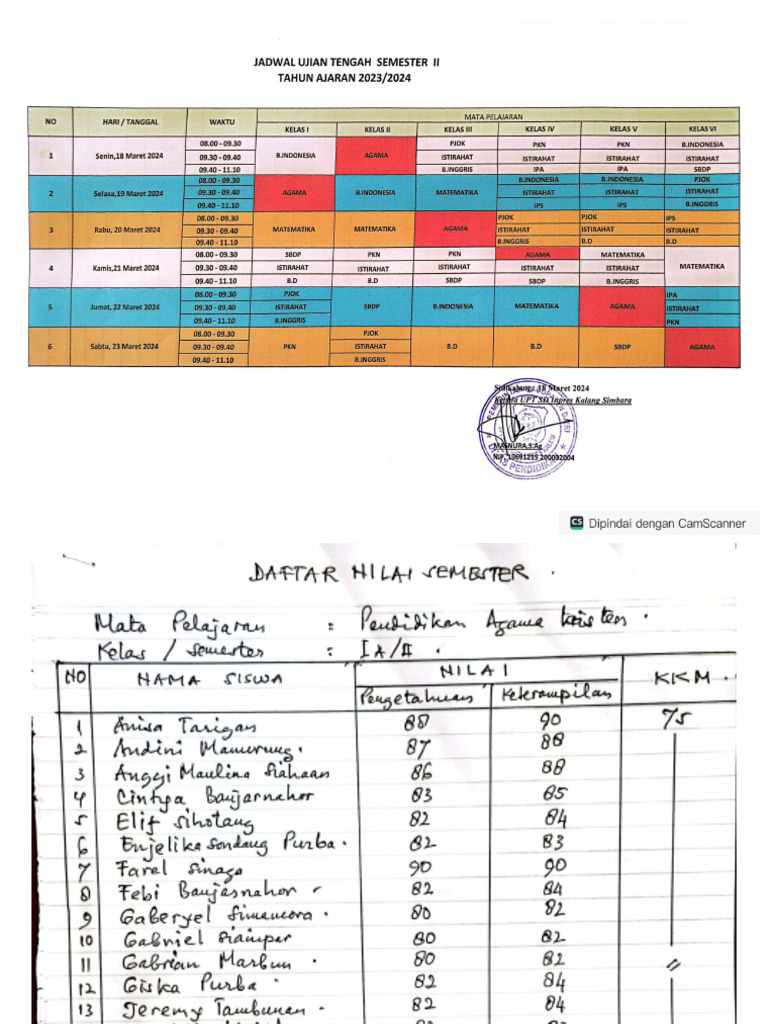 JADWAL UJIAN TENGAH SEMESTER II
TAHUN AJARAN 2023/2024
NO HARI / TANGGAL WAKTU MATA PELAJARAN
KELAS I KELAS II KELAS III KELAS IV KELAS V KELAS VI
1 Senin,18 Maret 2024 B.INDONESIA AGAMA
08.00 - 09.30 PJOK PKN PKN B.INDONESIA
09.30 - 09.40 ISTIRAHAT ISTIRAHAT ISTIRAHAT ISTIRAHAT
09.40 - 11.10 B.INGGRIS IPA IPA SBDP
2 Selasa,19 Maret 2024 AGAMA B.INDONESIA MATEMATIKA
08.00 - 09.30 B.INDONESIA B.INDONESIA PJOK
09.30 - 09.40 ISTIRAHAT ISTIRAHAT ISTIRAHAT
09.40 - 11.10 IPS IPS B.INGGRIS
3 Rabu, 20 Maret 2024 MATEMATIKA MATEMATIKA AGAMA
08.00 - 09.30 PJOK PJOK IPS
09.30 - 09.40 ISTIRAHAT ISTIRAHAT ISTIRAHAT
09.40 - 11.10 B.INGGRIS B.D B.D
4 Kamis,21 Maret 2024 MATEMATIKA
08.00 - 09.30 SBDP PKN PKN AGAMA MATEMATIKA
09.30 - 09.40 ISTIRAHAT ISTIRAHAT ISTIRAHAT ISTIRAHAT ISTIRAHAT
09.40 - 11.10 B.D B.D SBDP SBDP B.INGGRIS
5 Jumat, 22 Maret 2024 SBDP B.INDONESIA MATEMATIKA AGAMA
08.00 - 09.30 PJOK IPA
09.30 - 09.40 ISTIRAHAT ISTIRAHAT
09.40 - 11.10 B.INGGRIS PKN
6 Sabtu, 23 Maret 2024 PKN B.D B.D SBDP AGAMA
08.00 - 09.30 PJOK
09.30 - 09.40 ISTIRAHAT
09.40 - 11.10 B.INGGRIS
18 Maret 2024
UPT SD Inpres Kalang Simbara
MASNURA,S.Ag
CS Dipindai dengan CamScanner
DAFTAR NILAI SEMESTER .
Mata Pelajaran : Pendidikan Agama Kristen .
Kelas / semester : I A / II .
NO NAMA SISWA NILAI KKM .
Pengetahuan Keterampilan
1 Anisa Tarigan 88 90 75
2 Andini Manurung . 87 88
3 Anggi Maulina Siahaan 86 88
4 Cintya Banjarnahor 83 85
5 Elif Sihotang 82 84
6 Enjelika Sondang Purba . 82 83
7 Farel Sinaga 90 90
8 Febi Banjarnahor 82 84
9 Gaberyel Simamora . 80 82
10 Gabriel Sianipar 80 82
11 Gabrian Marbun . 80 82 //
12 Giska Purba . 82 84
13 Jeremy Tambunan . 82 84